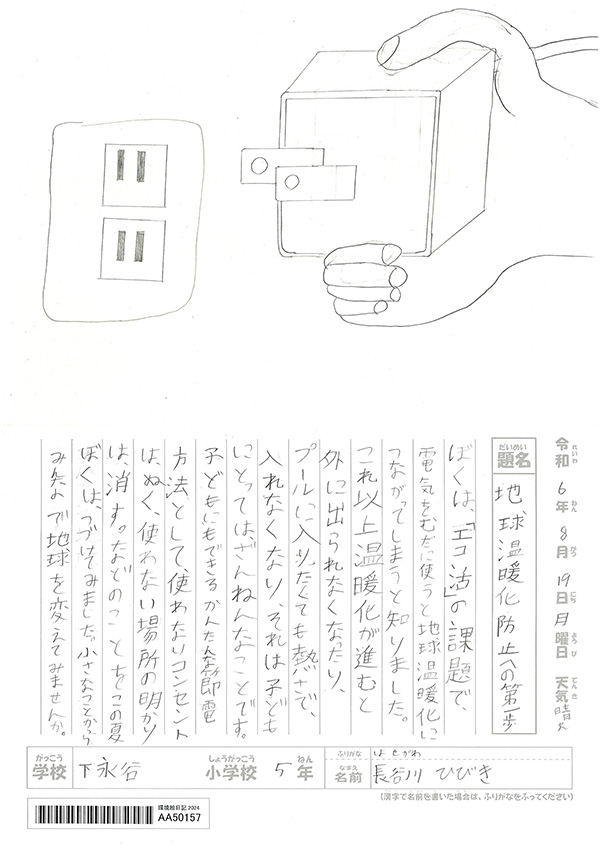 令和6年8月19日月曜日 天気晴れ
れいわ ねん がつ にち ようび てんき
だいめい
題名 地球温暖化防止への第一歩
ぼくは、「エコ活」の課題で、
電気をむだに使うと地球温暖化に
つながってしまうと知りました。
これ以上温暖化が進むと
外に出られなくなったり、
プールに入りたくても熱さで、
入れなくなり、それは子ども
にとっては、ざんねんなことです。
子どもにもできるかんたんな節電
方法として、使わないコンセント
は、ぬく、使わない場所の明かり
は、消す。などのことをこの夏
ぼくは、つづけてみました。小さなことから
みんなで地球を変えてみませんか。
がっこう しょうがっこう ねん ふりがな はせがわ
学校 下永谷 小学校 5年 なまえ 名前 長谷川 ひびき
(漢字で名前を書いた場合は、ふりがなをふってください)
環境絵日記2024
AA50157